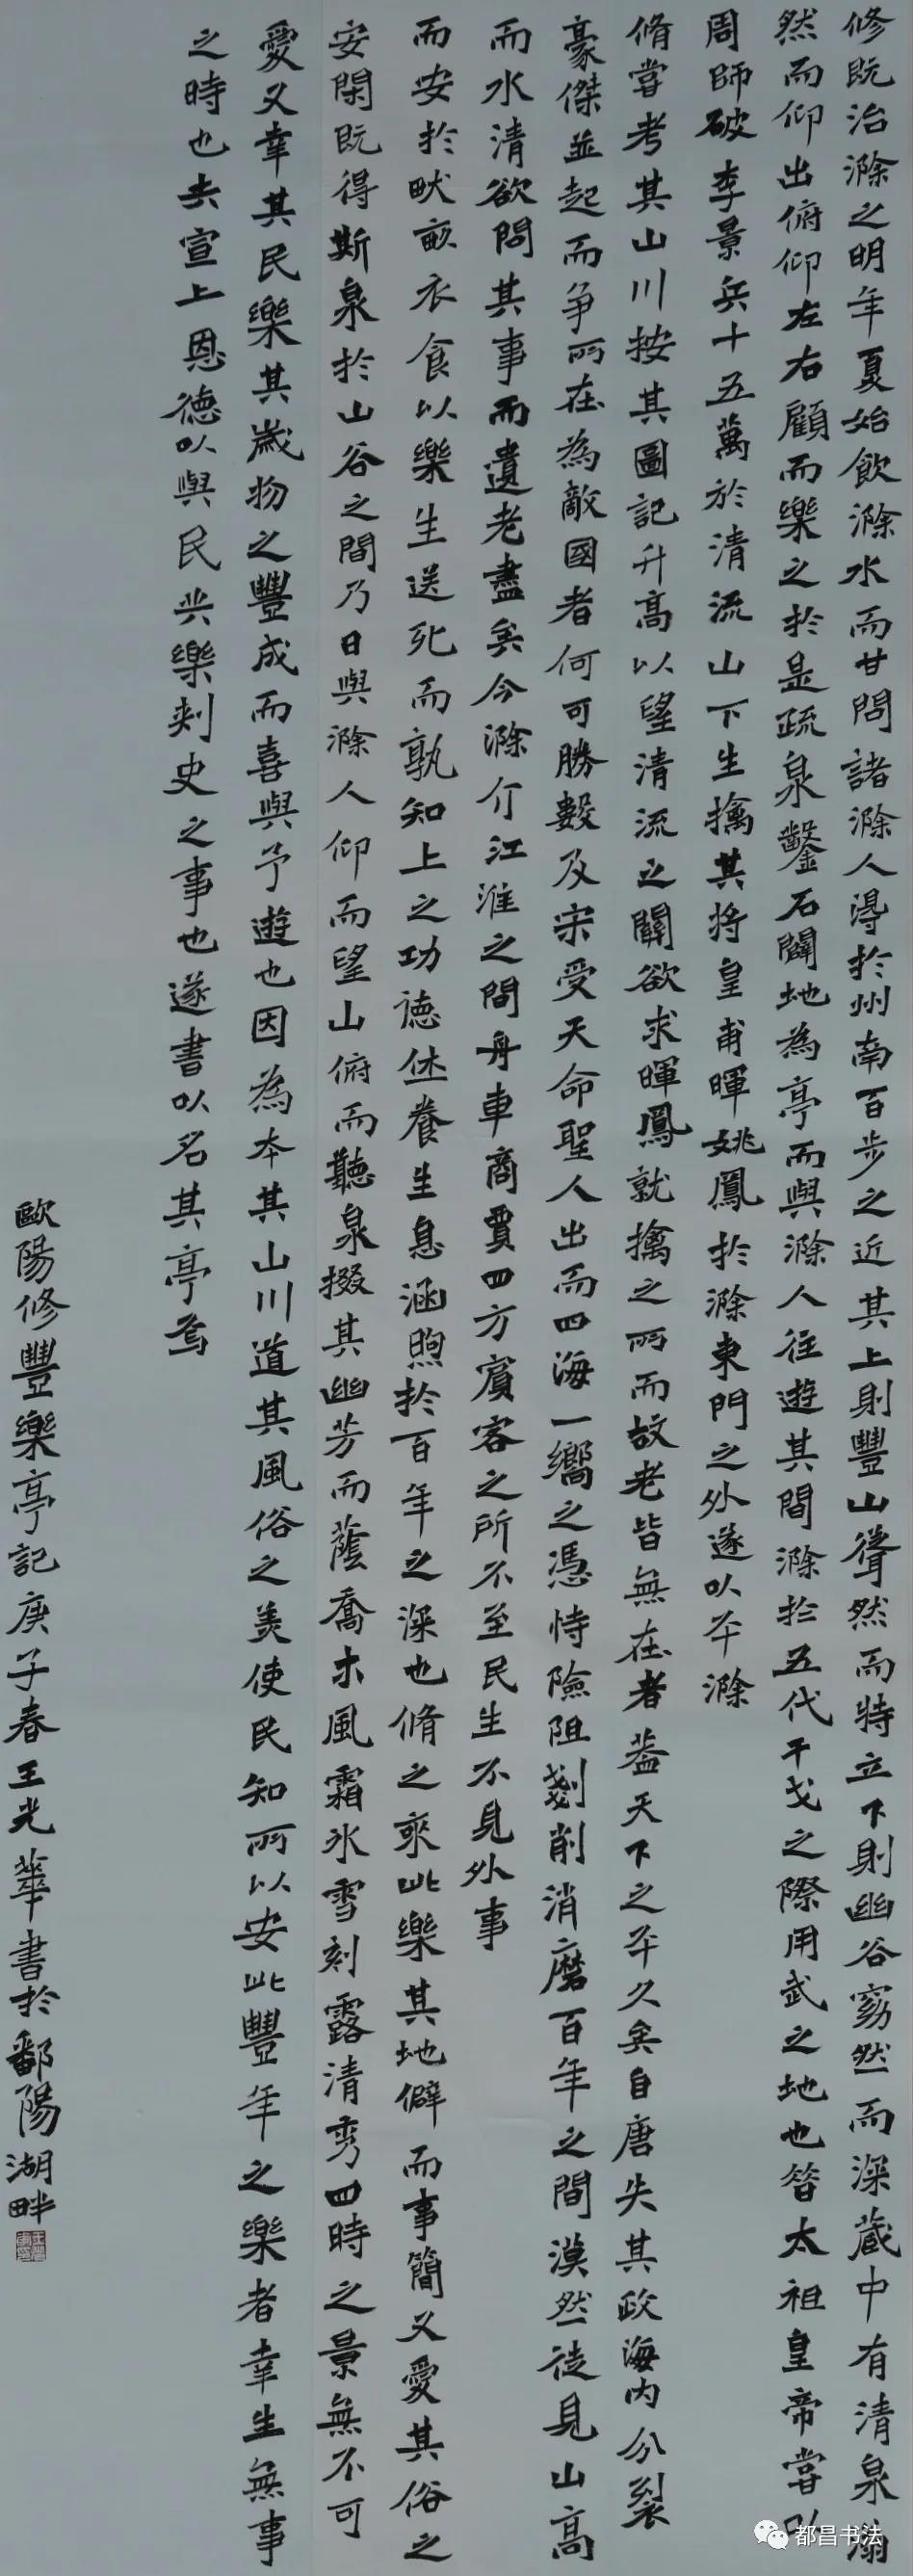 修既治滁之明年夏始飲滁水而甘問諸滁人得於州南百步之近其上則豐山聳然而特立下則幽谷窈然而深藏中有清泉滃
然而仰出俯仰左右顧而樂之於是疏泉鑿石闢地為亭而與滁人往遊其間滁於五代干戈之際用武之地也昝太祖皇帝嘗以
周師破李景兵十五萬於清流山下生擒其將皇甫暉姚鳳於滁東門之外遂以平滁
脩嘗考其山川按其圖記升高以望清流之關欲求暉鳳就擒之所而故老皆無在者蓋天下之平久矣自唐失其政海內分裂
豪傑並起而爭所在為敵國者何可勝數及宋受天命聖人出而四海一嚮之憑恃險阻剗削消磨百年之間漠然徒見山高
而水清欲問其事而遺老盡矣今滁介江淮之間舟車商賈四方賓客之所不至民生不見外事
而安於畎畝衣食以樂生送死而孰知上之功德休養生息涵煦於百年之深也脩之來此樂其地僻而事簡又愛其俗之
安閑既得斯泉於山谷之間乃日與滁人仰而望山俯而聽泉掇其幽芳而蔭喬木風霜氷雪刻露清秀四時之景無不可
愛又幸其民樂其歲物之豐成而喜與予遊也因為本其山川道其風俗之美使民知所以安此豐年之樂者幸生無事
之時也夫宣上恩德以與民共樂刺史之事也遂書以名其亭焉
歐陽修豐樂亭記庚子春王光華書於鄱陽湖畔
都昌书法